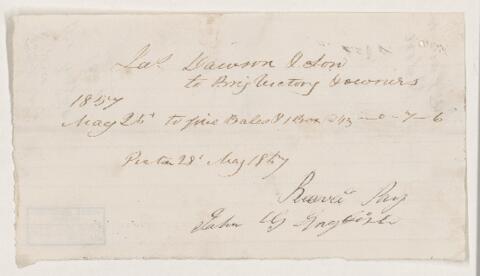 Jas. Dawson & Son
to Brig Victory & owners
1847
May 26t to five Bales & 1 Box 0-7-6
Pictou 28t May 1847
Received Pay
John